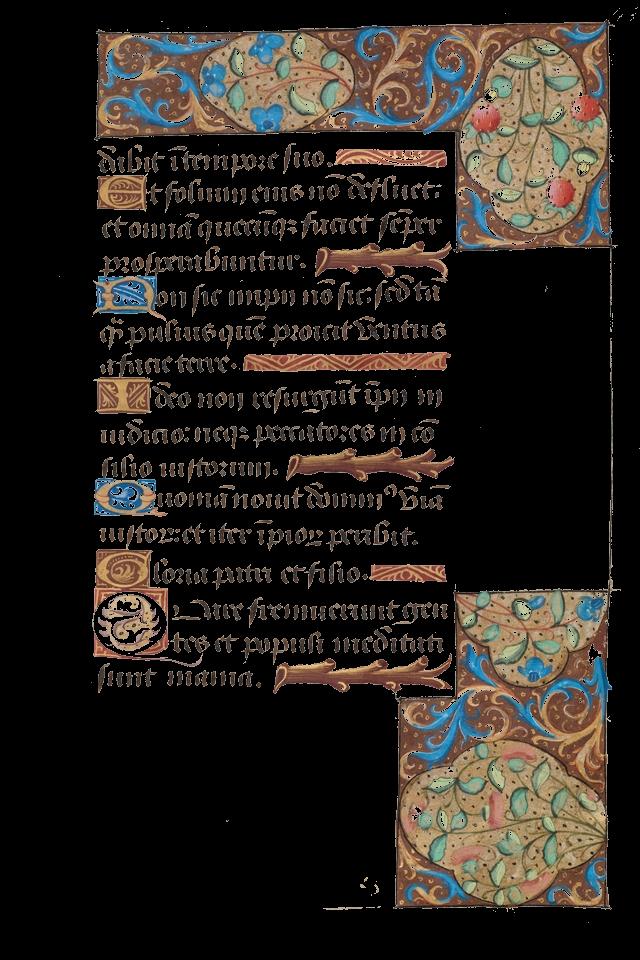 dabit ī tempore suo.
Et folium eius nō defluet:
et omīa quecūq; faciet sēper
prosperabuntur.
Non sic impii nō sic: sed tā
q̄ puluis quē proicit ventus
a facie terre.
Ideo non resurgūt ipii in
iudicio: neq; peccatores in cō
silio iustorum.
Quoniā nouit domin⁹ viā
iustoꝝ: et iter īpioꝝ peribit.
Gloria patri et filio.
Quare fremuerunt gen
tes et populi meditati
sunt inania.